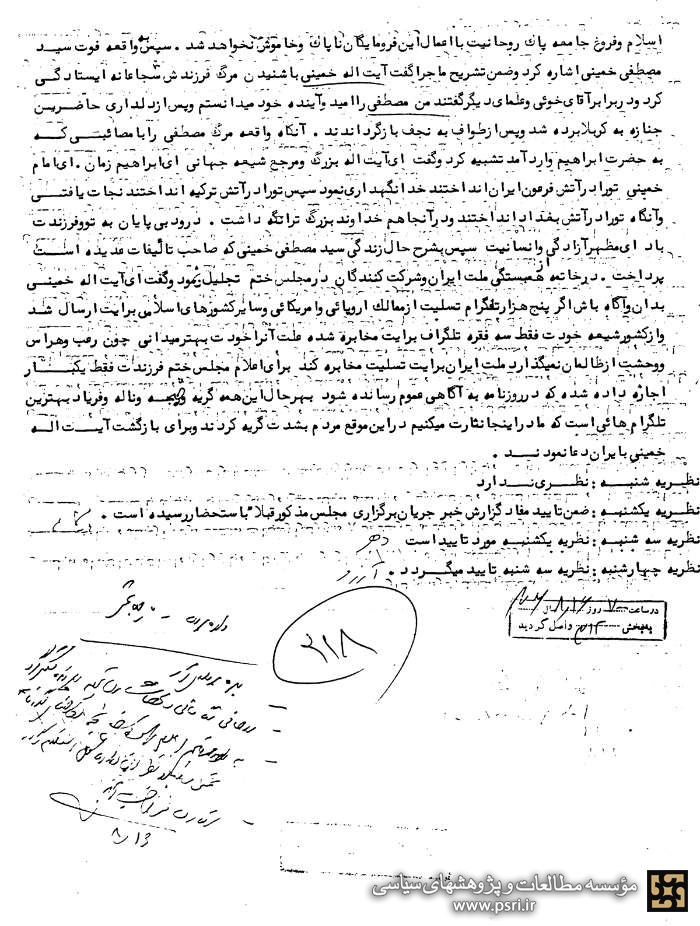 اسلام وفروغ جامعه پاک روحانیت با اعمال این فرومایگان ناپاک وخاموش نخواهد شد . سپس به واقعه فوت سید
مصطفی خمینی اشاره کرد وضمن تشریح ماجرا گفت آیت اله خمینی با شنیدن مرگ فرزندش شجاعانه ایستادگی
کرد ودر برابر آقای خوئی وعلمای دیگر گفتند من مصطفی را امید وآینده خود میدانستم وپس از دلداری حاضرین
جنازه به کربلا برده شد وپس از طواف به نجف بازگرداندند . آنگاه واقعه مرگ مصطفی را با مصائبی که
به حضرت ابراهیم وارد آمد تشبیه کرد وگفت ای آیت اله بزرگ ومرجع شیعه جهانی ای ابراهیم زمان . ای امام
خمینی تورا در آتش فرعون ایران انداختند خدا نگهداری نمود سپس تورا در آتش ترکیه انداختند نجات یافتی
وآنگاه تورا در آتش بغداد انداختند ودر آنجا هم خداوند بزرگ ترا نگه داشت . درود بی پایان به تو وفرزندت
باد ای مظهر آزادگی وانسانیت سپس بشرح حال زندگی سید مصطفی خمینی که صاحب تالیفات عدیده است
پرداخت . در خاتمه از همبستگی ملت ایران وشرکت کنندگان در مجلس ختم تجلیل نمود وگفت ای آیت اله خمینی
بدان وآگاه باش اگر پنج هزار تلگرام تسلیت از ممالک اروپائی وامریکائی وسایر کشورهای اسلامی برایت ارسال شد
واز کشور شیعه خودت فقط سه فقره تلگراف برایت مخابره شده علت آنرا خودت بهتر میدانی چون رعب وهراس
ووحشت از ظالمان نمیگذارد ملت ایران برایت تسلیت مخابره کند برای اعلام مجلس ختم فرزندت فقط یکبار
اجازه داده شده که در روزنامه به آگاهی عموم رسانده شود بهر حال این همه گریه وضجه وناله وفریاد بهترین
تلگرام هائی است که ما در اینجا نثارت میکنیم در این موقع مردم بشدت گریه کردند وبرای بازگشت آیت اله
خمینی با ایران دعا نمودند .
نظریه شنبه : نظری ندارد
نظریه یکشنبه : ضمن تایید مفاد گزارش خبر جریان برگزاری مجلس مذکور قبلا" باستحضار رسیده است .
نظریه سه شنبه : نظریه یکشنبه مورد تایید است
نظریه چهارشنبه : نظریه سه شنبه تایید میگردد .
در ساعت روز سال
به بخش ۳۱۲ واصل گردید
۳۱۸
مؤسسه مطالعات و پژوهشهای سیاسی
www.psri.ir